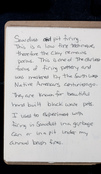 Sawdust and pit firing.
This is a low fire technique,
therefore the clay remains
porous. This is one of the oldest
forms of firing pottery and
was mastered by the South West
Native Americans centuries ago.
They are known for beautiful
hand built black ware pots.
I used to experiment with
firing in sawdust in a garbage
can or in a pit under my
animal bean fires.